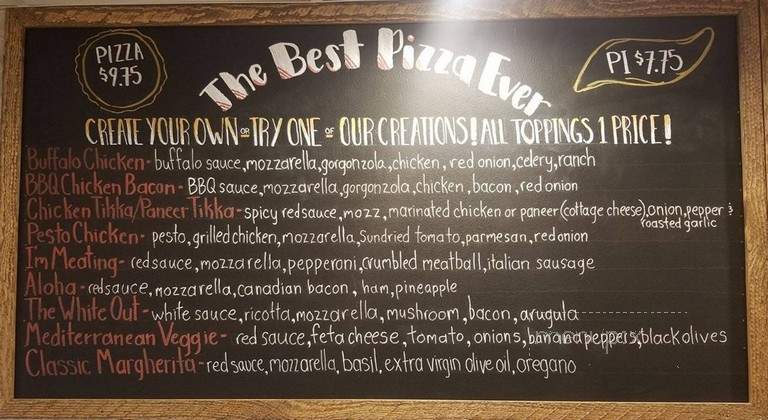 PIZZA
$9.75
The Best Pizza Ever
PI $7.75
CREATE YOUR OWN OR TRY ONE OF OUR CREATIONS! ALL TOPPINGS 1 PRICE!
Buffalo Chicken- buffalo sauce, mozzarella, gorgonzola, chicken, red onion, celery, ranch
BBQ Chicken Bacon- BBQ sauce, mozzarella, gorgonzola, chicken, bacon, red onion
Chicken Tikka/Paneer Tikka- spicy red sauce, mozz, marinated chicken or paneer (cottage cheese), onion, pepper &
roasted garlic
Pesto Chicken- pesto, grilled chicken, mozzarella, sundried tomato, parmesan, red onion
I'm Meating- red sauce, mozzarella, pepperoni, crumbled meatball, italian sausage
Aloha- red sauce, mozzarella, canadian bacon, ham, pineapple
The White Out- white sauce, ricotta, mozzarella, mushroom, bacon, arugula
Mediterranean Veggie- red sauce, feta cheese, tomato, onions, banana peppers, black olives
Classic Margherita- red sauce, mozzarella, basil, extra virgin olive oil, oregano